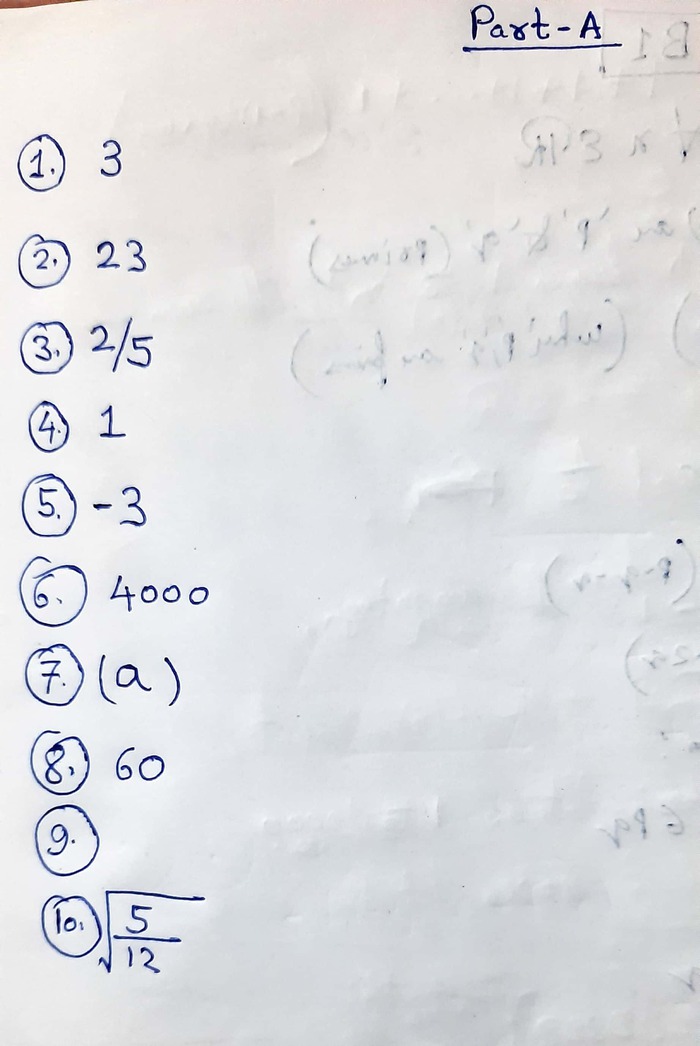 Part-A
1. 3
2. 23
3. 2/5
4. 1
5. -3
6. 4000
7. (a)
8. 60
9.
10. √5/12